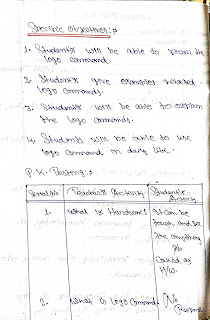 Specific Objectives :-
1. Students will be able to recall the
logo command.
2. Students give examples related
logo commands.
3. Students will be able to explain
the logo commands.
4. Students will be able to use
logo command in daily life.
P.K. Testing :-
Serial No Teacher's Activity Student's Activity
1. What is Hardware? It can be
touch and see
the anything
is
called as
H/w.
2. What is logo command. No
Response